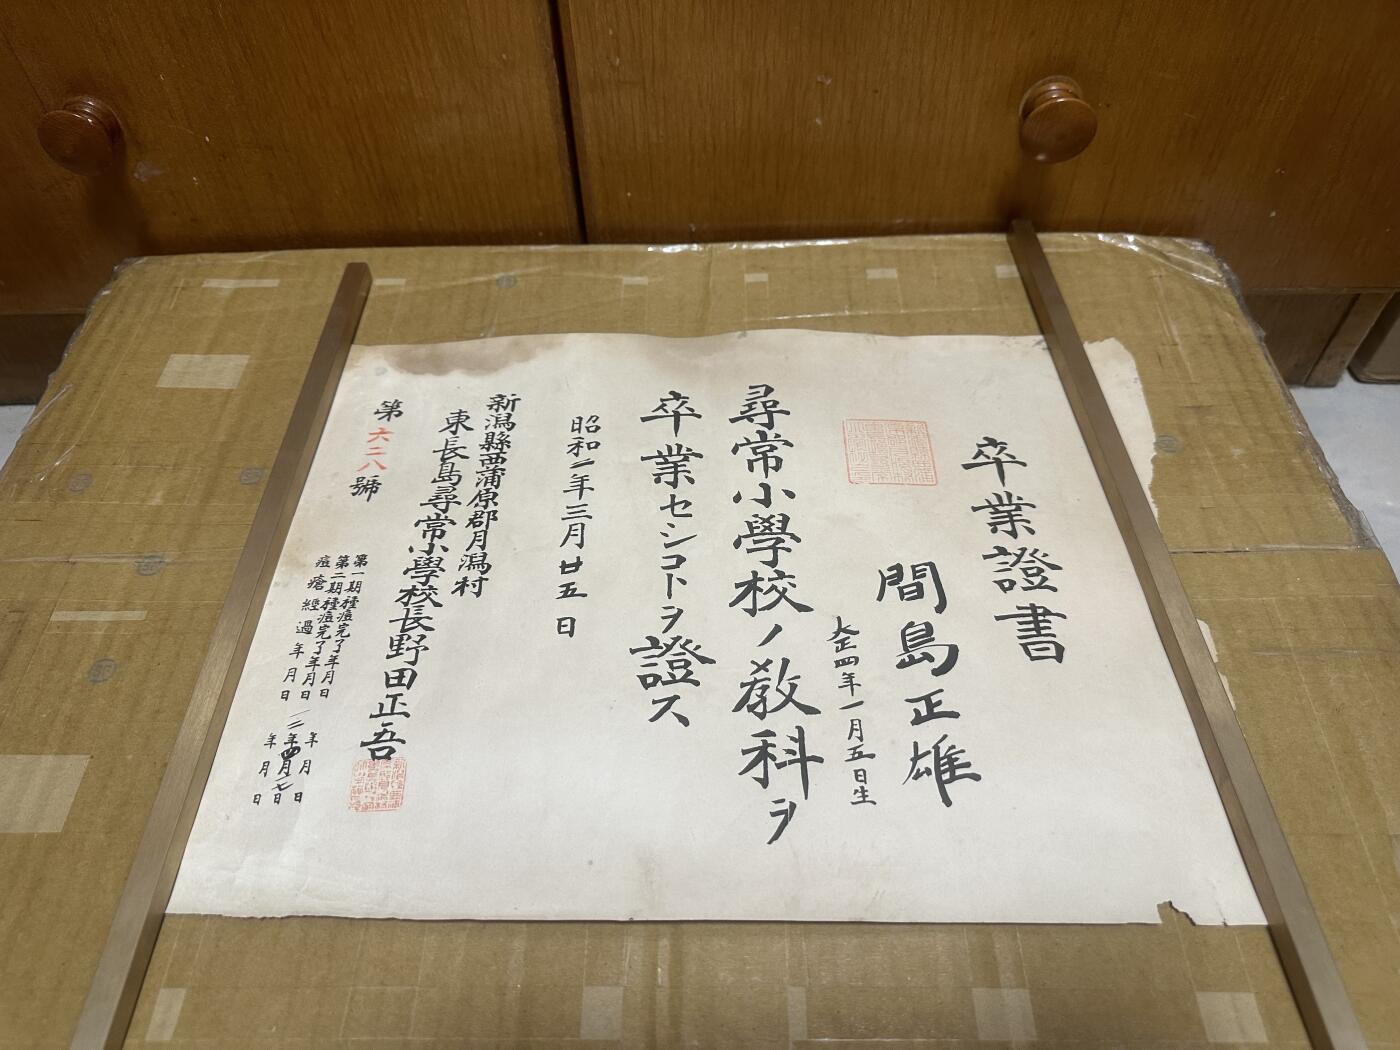 卒業證書
間島正雄
大正四年一月五日生
尋常小學校ノ教科ヲ
卒業セシコトヲ證ス
昭和二年三月廿五日
新潟縣西蒲原郡月潟村
東長島尋常小學校長野田正吾
第六二八號
第一期種痘完了年月日 年 月 日
第二期種痘完了年月日 一二年四月七日
痘瘡經過年月日 年 月 日